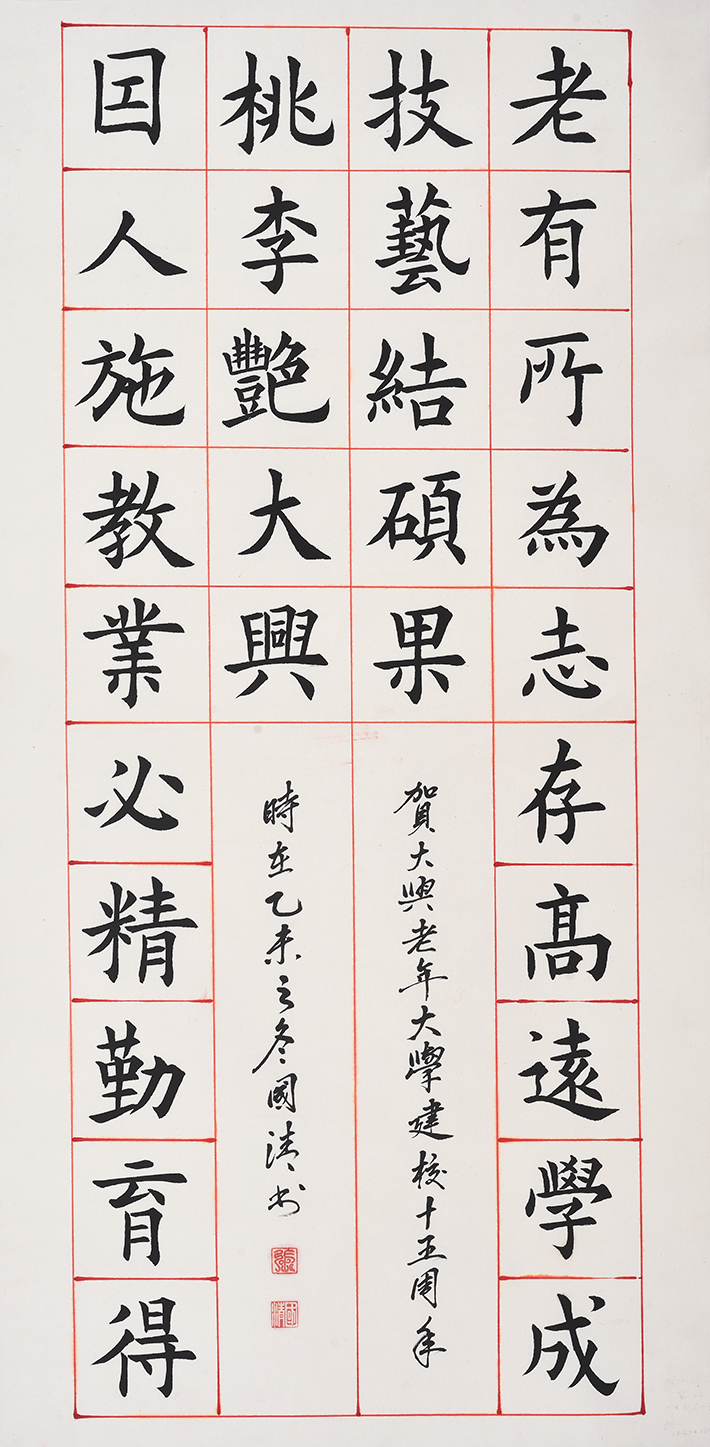 老有所為志存髙遠學成
技藝結碩果
賀大興老年大學建校十五周年
囙人施教業必精勤育得
桃李艷大興
時在乙未之冬國清書